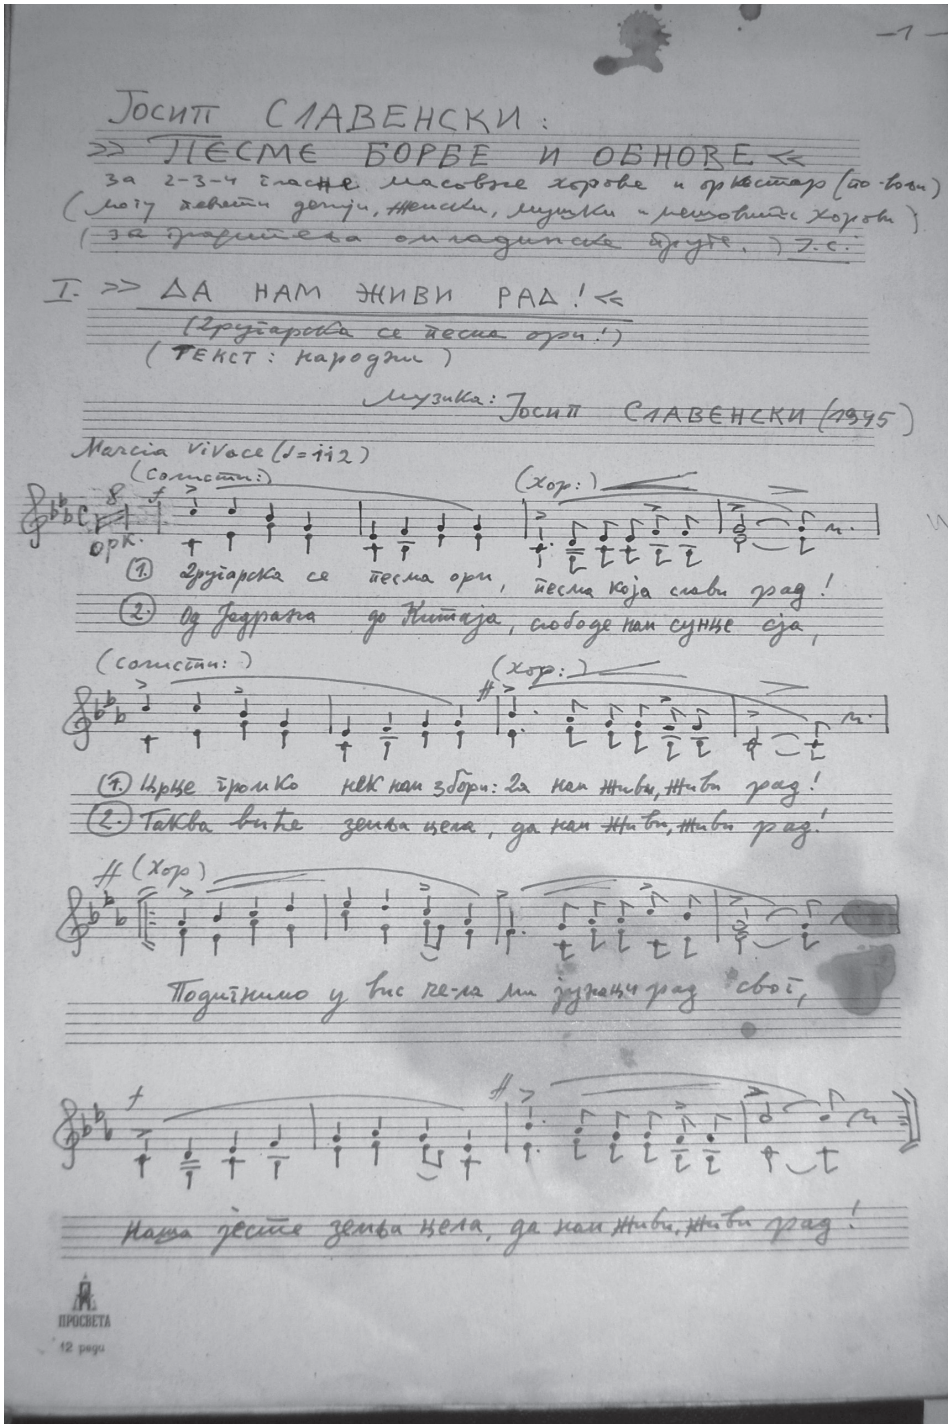 —1—
Јосип СЛАВЕНСКИ:
>> ПЕСМЕ БОРБЕ И ОБНОВЕ <<
за 2-3-4 гласне масовне хорове и оркестар (по вољи)
(могу певати дечји, женски, мушки и мешовити хорови)
(за градитеља омладинске пруге.) Ј.С.
I. >> ДА НАМ ЖИВИ РАД! <<
(Другарска се песма ори!)
(ТЕКСТ: народни)
Музика: Јосип СЛАВЕНСКИ (1945)
Marcia vivace (♩=112)
(солисти:) (Хор:)
8 f
орк.
1. Другарска се песма ори, песма која слави рад!
2. Од Јадрана до Китаја, слободе нам сунце сја,
(солисти:) (Хор:)
ff
1. Црце громко нек нам збори: Да нам живи, живи рад!
2. Таква биће земља цела, да нам живи, живи рад!
ff (Хор)
Подигнимо у вис че-ла ми јунаци рад свој,
f ff
Наша јесте земља цела, да нам живи, живи рад!
ПРОСВЕТА
12 реди